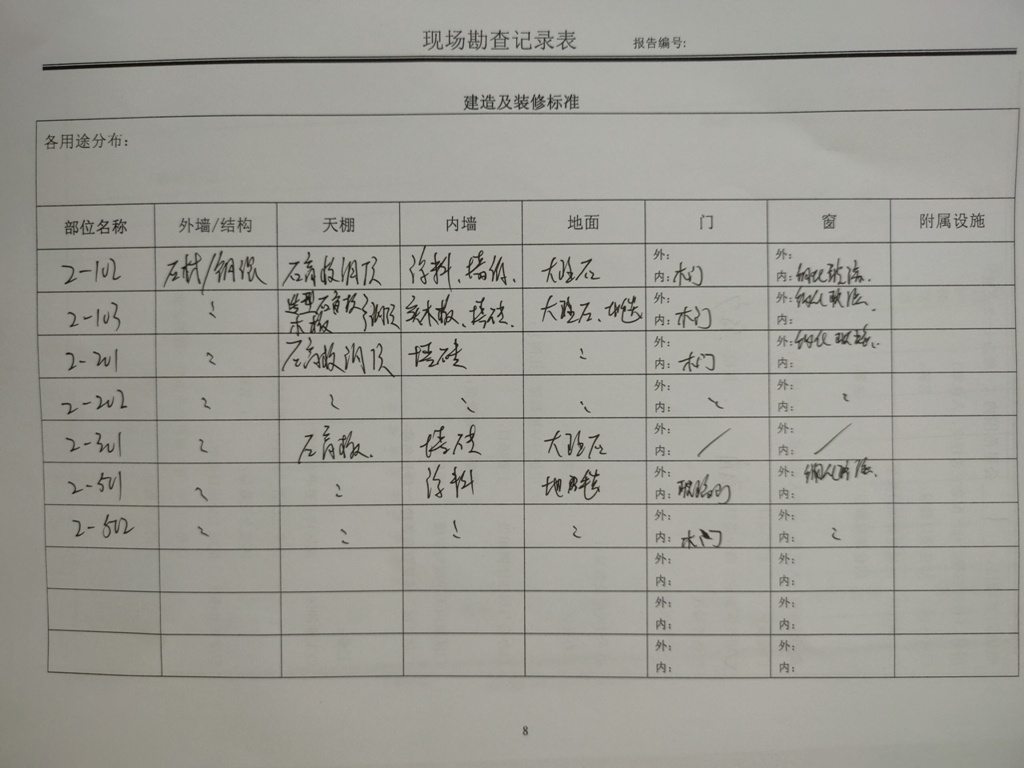 现场勘查记录表 报告编号:
建造及装修标准
各用途分布:
部位名称 外墙/结构 天棚 内墙 地面 门 窗 附属设施
外: 外:
2-102 石材/钢混 石膏板吊顶 涂料、墙砖. 大理石 内: 木门 内: 钢化玻璃.
造型石膏板 外: 外: 钢化玻璃.
2-103 〃 木板 吊顶 实木板、墙砖. 大理石、地毯 内: 木门 内:
外: 外: 钢化玻璃.
2-201 〃 石膏板吊顶 墙砖 〃 内: 木门 内:
外: 外:
2-202 〃 〃 〃 〃 内: 〃 内: 〃
外: 外:
2-301 〃 石膏板. 墙砖 大理石 内: / 内: /
外: 外: 钢化玻璃.
2-501 〃 〃 涂料 地毯 内: 玻璃门 内:
外: 外:
2-502 〃 〃 〃 〃 内: 木门 内: 〃
外: 外:
内: 内:
外: 外:
内: 内:
外: 外:
内: 内:
8